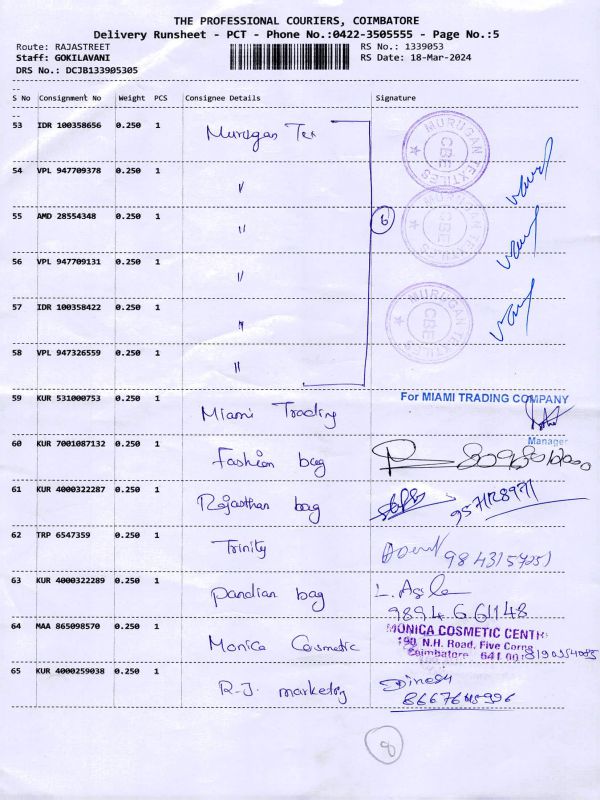 THE PROFESSIONAL COURIERS, COIMBATORE
Delivery Runsheet - PCT - Phone No.:0422-3505555 - Page No.:5
Route: RAJASTREET
RS No.: 1339053
Staff: GOKILAVANI
RS Date: 18-Mar-2024
DRS No.: DCJB133905305
S No Consignment No Weight PCS Consignee Details Signature
53 IDR 100358656 0.250 1 Murugan Tex
MURUGAN TEXTILES CBE
54 VPL 947709378 0.250 1 "
55 AMD 28554348 0.250 1 " 6
56 VPL 947709131 0.250 1 "
57 IDR 100358422 0.250 1 "
MURUGAN TEXTILES CBE
58 VPL 947326559 0.250 1 "
59 KUR 531000753 0.250 1 Miami Trading For MIAMI TRADING COMPANY
Manager
60 KUR 7001087132 0.250 1 Fashion bag
61 KUR 4000322287 0.250 1 Rajasthan bag
62 TRP 6547359 0.250 1 Trinity
63 KUR 4000322289 0.250 1 Pandian bag
9894661148
64 MAA 865098570 0.250 1 Monica Cosmetic MONICA COSMETIC CENTR
190, N.H. Road, Five Corne
Coimbatore - 641 00
65 KUR 4000259038 0.250 1 R.J. marketing Dinesh
8